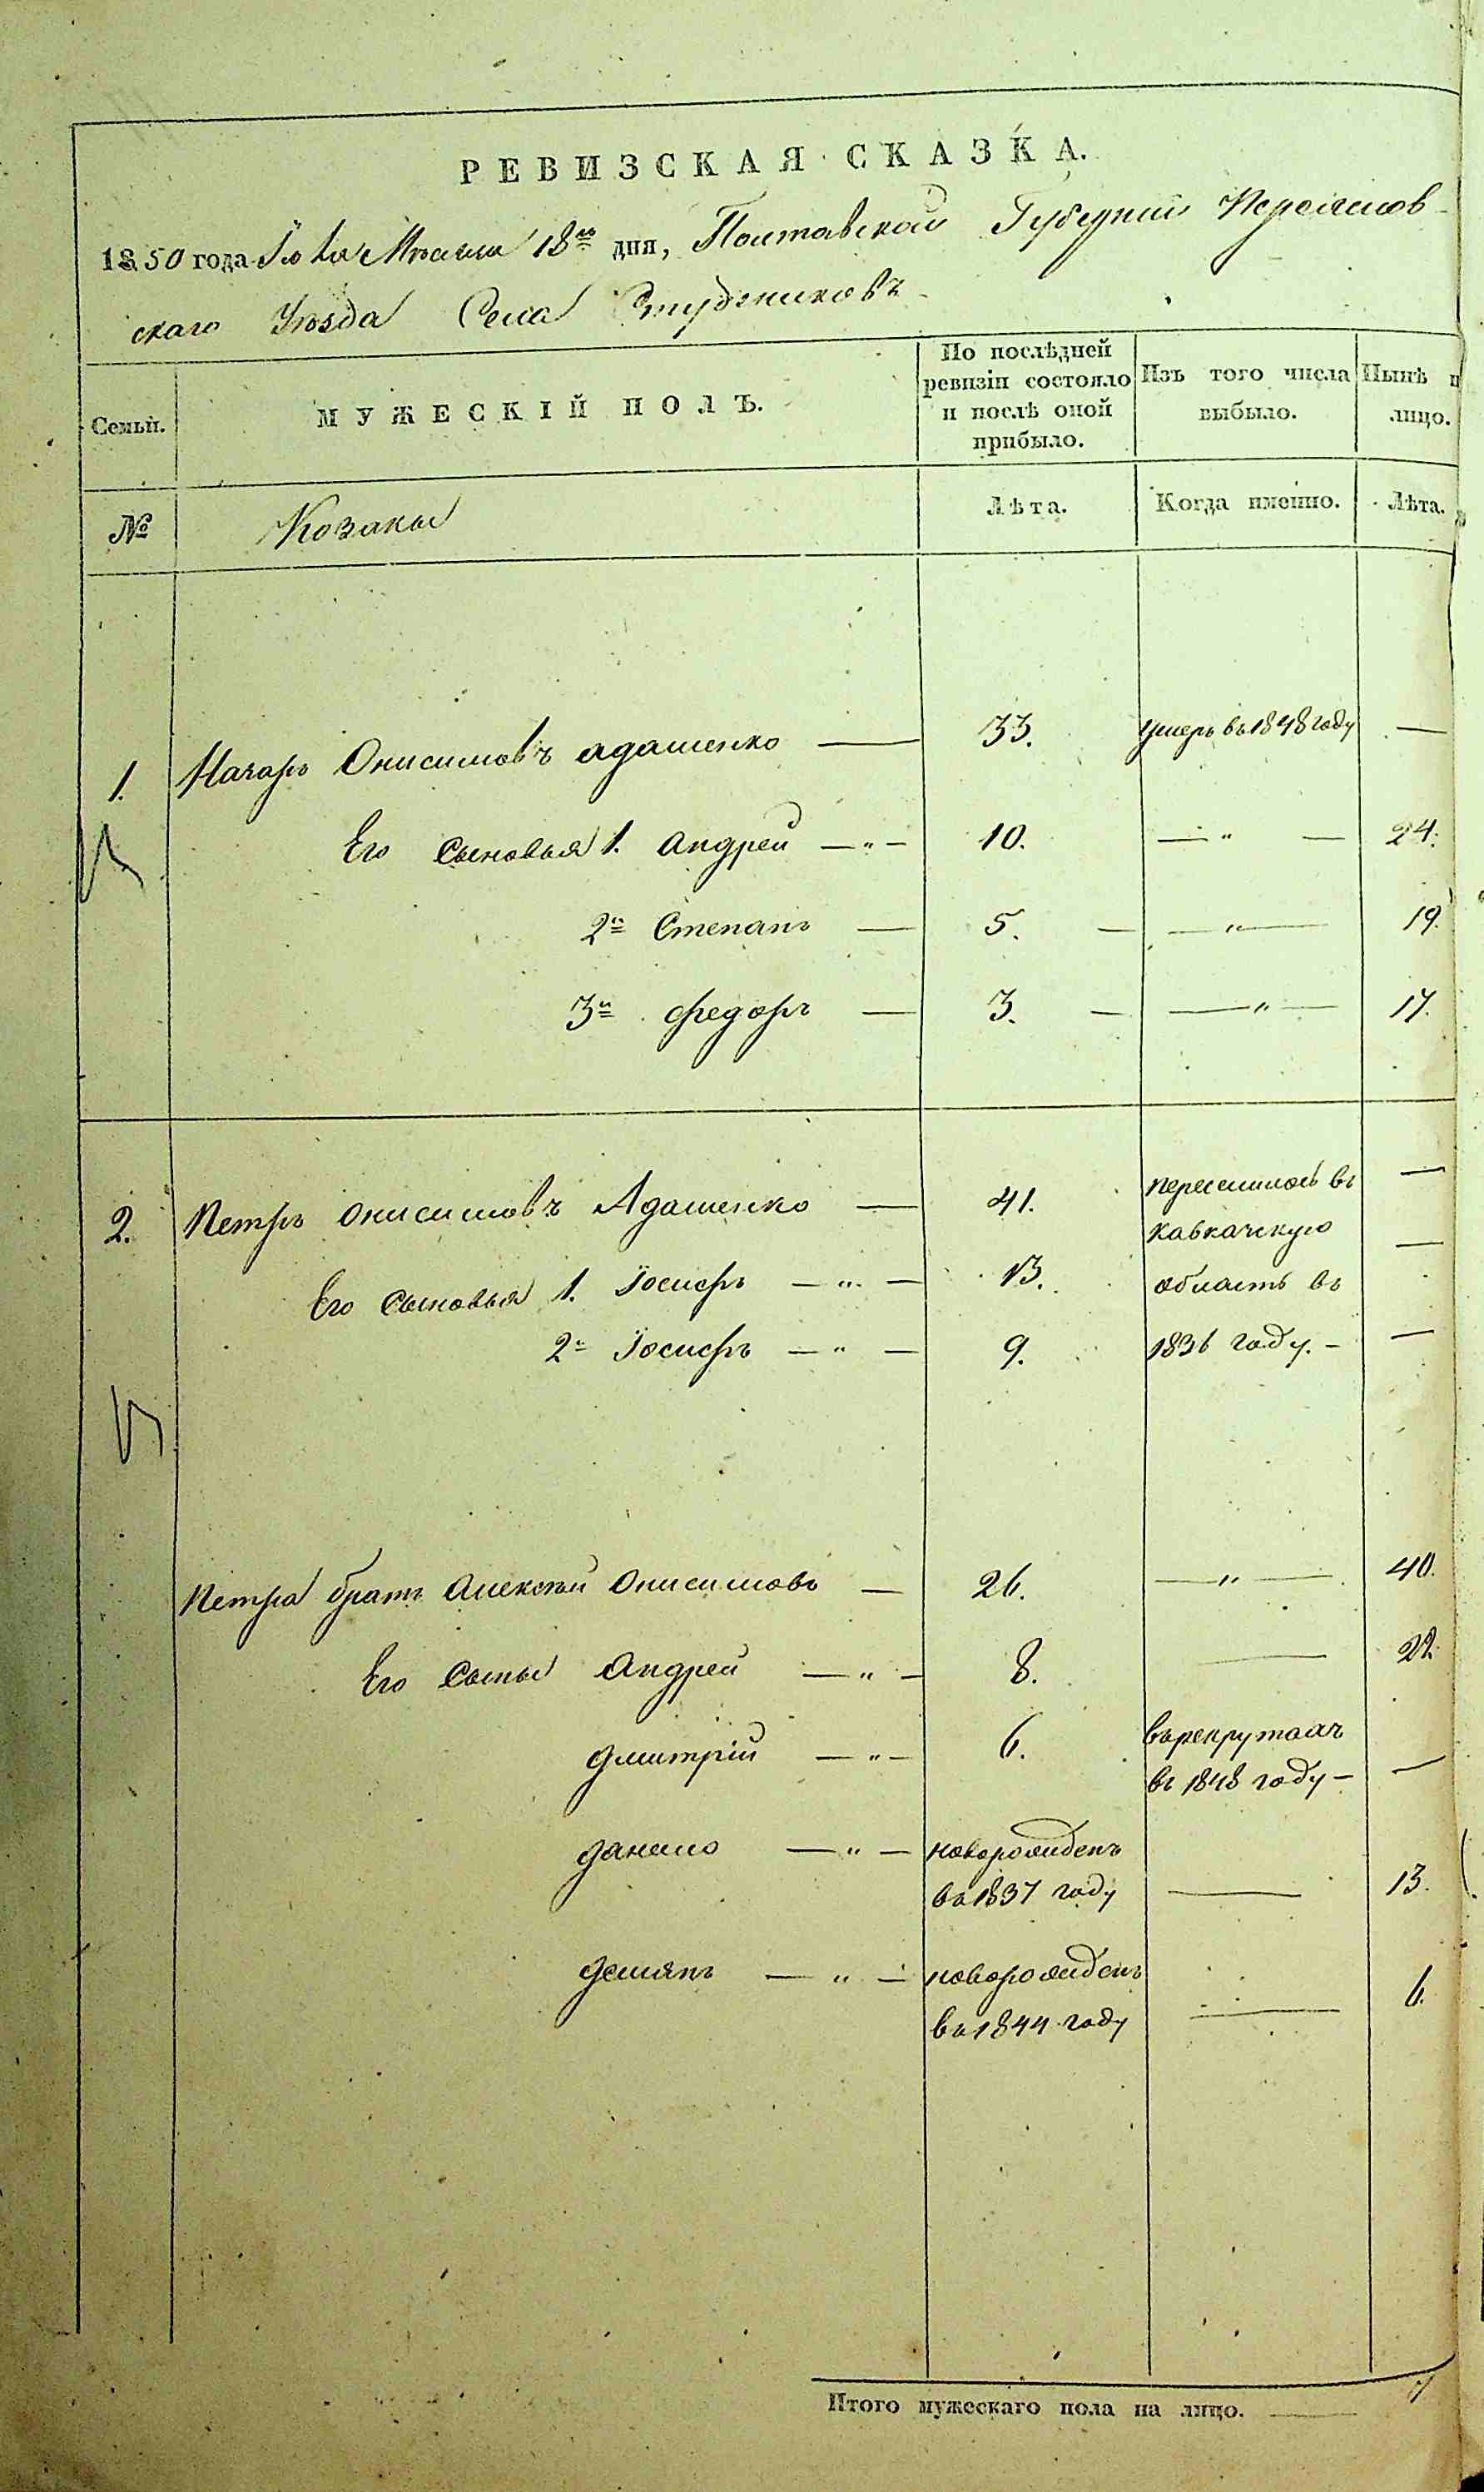 РЕВИЗСКАЯ СКАЗКА.
1850 года Іюля Мѣсяца 18го дня, Полтавской Губерніи Переяслов-
скаго Уѣзда Села Студениковъ
Семьи. МУЖЕСКІЙ ПОЛЪ. По послѣдней ревизіи состояло и послѣ оной прибыло. Изъ того числа выбыло. Нынѣ н лицо.
№ Козаки Лѣта. Когда именно. Лѣта.
1. Назаръ Онисимовъ Адашенко — 33. умеръ въ 1848 году —
Его Сыновья 1. Андрей —"— 10. —"— 24.
2й Степанъ — 5. — —"— 19.
3й Федоръ — 3. — —"— 17.
2. Петръ Онисимовъ Адашенко — 41. переселился въ —
кавказскую
Его Сыновья 1. Іосифъ —"— 13. область въ —
2й Іосифъ —"— 9. 1836 году. — —
Петра братъ Алексѣй Онисимовъ — 26. —"— 40.
Его Сыны Андрей —"— 8. — 22
Дмитрій —"— 6. въ рекрутахъ
въ 1848 году — —
Данило —"— новорожденъ
въ 1837 году — 13.
Демянъ —"— новорожденъ
въ 1844 году — 6.
Итого мужескаго пола на лицо. — 7